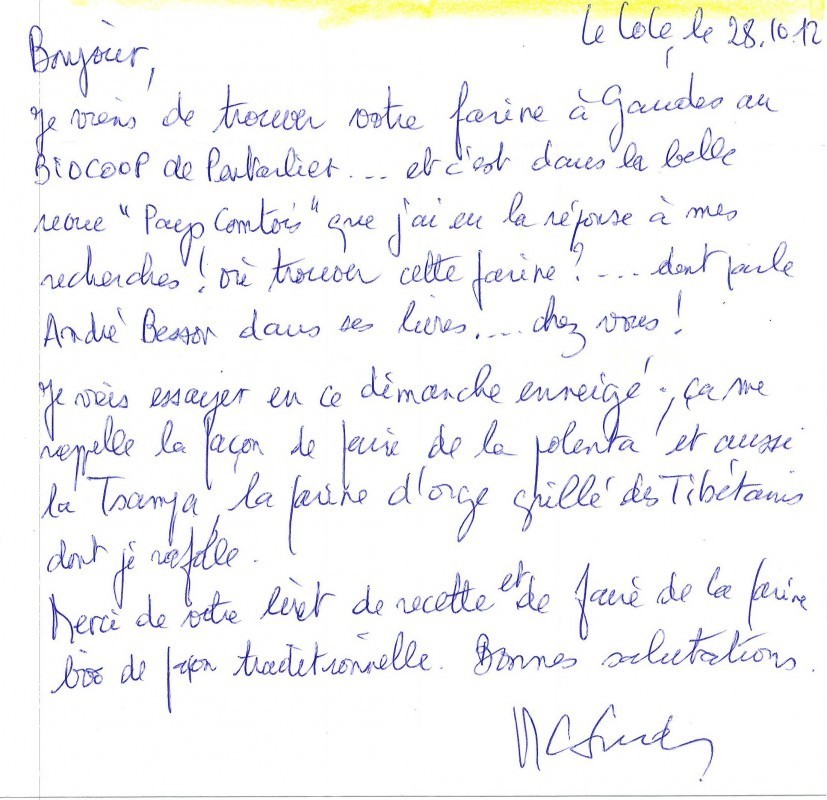 le 28.10.12
Bonjour,
Je viens de trouver votre farine à Gaudes au
BIOCOOP de Pontarlier... et c'est dans la belle
revue "Pays Comtois" que j'ai eu la réponse à mes
recherches ! où trouver cette farine ? .... dont parle
André Besson dans ses livres.... chez vous !
Je vais essayer en ce dimanche enneigé, ça me
rappelle la façon de faire de la polenta et aussi
la Tsampa, la farine d'orge grillé des Tibétains
dont je raffole.
Merci de votre livret de recette et de faire de la farine
bio de façon traditionnelle. Bonnes salutations.